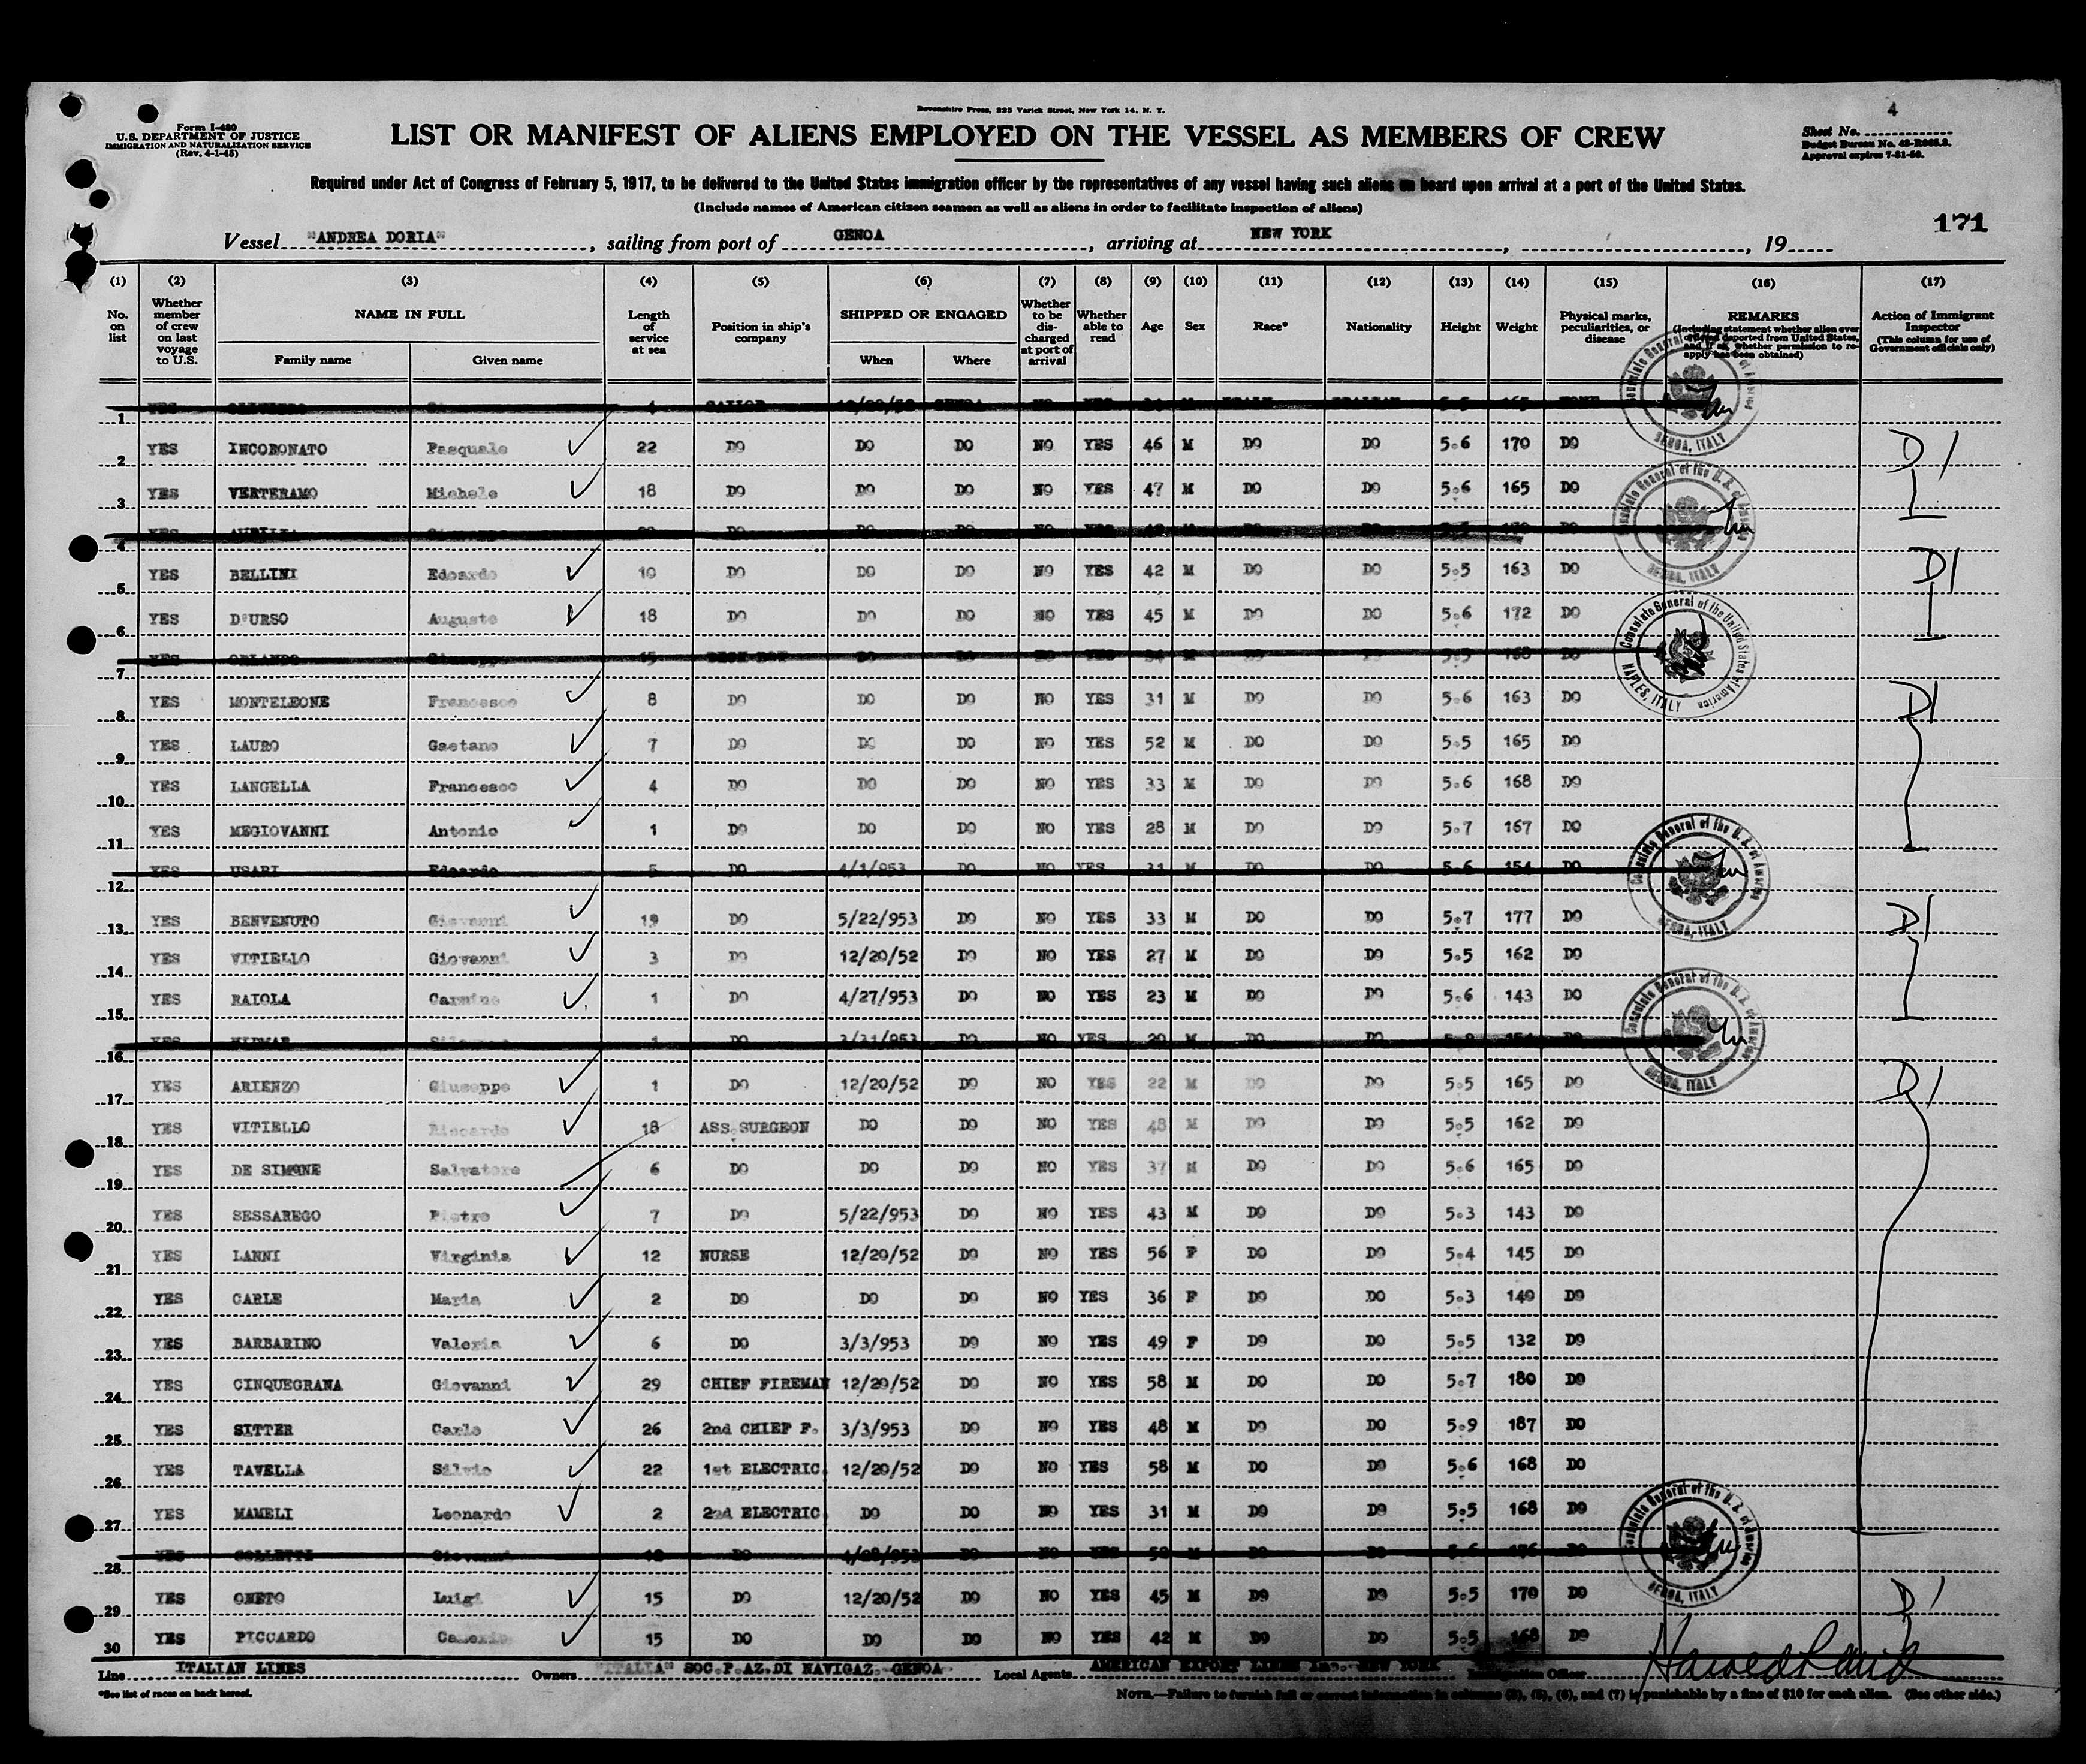 Devonshire Press, 225 Varick Street, New York 14, N. Y.
4
Form I-480
U.S. DEPARTMENT OF JUSTICE
IMMIGRATION AND NATURALIZATION SERVICE
(Rev. 4-1-45)
LIST OR MANIFEST OF ALIENS EMPLOYED ON THE VESSEL AS MEMBERS OF CREW
Sheet No.
Budget Bureau No. 43-R065.2.
Approval expires 7-31-50.
Required under Act of Congress of February 5, 1917, to be delivered to the United States immigration officer by the representatives of any vessel having such aliens on board upon arrival at a port of the United States.
(Include names of American citizen seamen as well as aliens in order to facilitate inspection of aliens)
171
Vessel "ANDREA DORIA", sailing from port of GENOA, arriving at NEW YORK, , 19
(1) (2) (3) (4) (5) (6) (7) (8) (9) (10) (11) (12) (13) (14) (15) (16) (17)
No. on list
Whether member of crew on last voyage to U.S.
NAME IN FULL
Family name Given name
Length of service at sea
Position in ship's company
SHIPPED OR ENGAGED
When Where
Whether to be discharged at port of arrival
Whether able to read
Age
Sex
Race*
Nationality
Height
Weight
Physical marks, peculiarities, or disease
REMARKS
(Including statement whether alien ever ordered deported from United States, and if so, whether permission to reapply has been obtained)
Action of Immigrant Inspector
(This column for use of Government officials only)
1 YES SAILOR 12/20/52 GENOA NO YES M 5.5 165 NONE
2 YES INCORONATO Pasquale 22 DO DO DO NO YES 46 M DO DO 5.6 170 DO D1
3 YES VERTERAMO Michele 18 DO DO DO NO YES 47 M DO DO 5.6 165 DO
4 YES DO DO DO NO YES M DO DO DO
5 YES BELLINI Edoardo 10 DO DO DO NO YES 42 M DO DO 5.5 163 DO D1
6 YES D'URSO Augusto 18 DO DO DO NO YES 45 M DO DO 5.6 172 DO
7 YES ORLANDO Giuseppe 15 DECK BOY DO DO NO YES 34 M DO DO 5.5 168 DO
8 YES MONTELEONE Francesco 8 DO DO DO NO YES 31 M DO DO 5.6 163 DO D1
9 YES LAURO Gaetano 7 DO DO DO NO YES 52 M DO DO 5.5 165 DO
10 YES LANGELLA Francesco 4 DO DO DO NO YES 33 M DO DO 5.6 168 DO
11 YES MEGIOVANNI Antonio 1 DO DO DO NO YES 28 M DO DO 5.7 167 DO
12 YES USARI Edoardo 5 DO 4/1/953 DO NO YES 31 M DO DO 5.6 154 DO
13 YES BENVENUTO Giovanni 19 DO 5/22/953 DO NO YES 33 M DO DO 5.7 177 DO D1
14 YES VITIELLO Giovanni 3 DO 12/20/52 DO NO YES 27 M DO DO 5.5 162 DO
15 YES RAIOLA Carmine 1 DO 4/27/953 DO NO YES 23 M DO DO 5.6 143 DO
16 YES 1 DO 3/31/953 DO NO YES 20 M DO DO 154 DO
17 YES ARIENZO Giuseppe 1 DO 12/20/52 DO NO YES 22 M DO DO 5.5 165 DO D1
18 YES VITIELLO Riccardo 18 ASS. SURGEON DO DO NO YES 48 M DO DO 5.5 162 DO
19 YES DE SIMONE Salvatore 6 DO DO DO NO YES 37 M DO DO 5.6 165 DO
20 YES SESSAREGO Pietro 7 DO 5/22/953 DO NO YES 43 M DO DO 5.3 143 DO
21 YES LANNI Virginia 12 NURSE 12/20/52 DO NO YES 56 F DO DO 5.4 145 DO
22 YES CARLE Maria 2 DO DO DO NO YES 36 F DO DO 5.3 140 DO
23 YES BARBARINO Valeria 6 DO 3/3/953 DO NO YES 49 F DO DO 5.5 132 DO
24 YES CINQUEGRANA Giovanni 29 CHIEF FIREMAN 12/20/52 DO NO YES 58 M DO DO 5.7 180 DO
25 YES SITTER Carlo 26 2nd CHIEF F. 3/3/953 DO NO YES 48 M DO DO 5.9 187 DO
26 YES TAVELLA Silvio 22 1st ELECTRIC. 12/20/52 DO NO YES 58 M DO DO 5.6 168 DO
27 YES MAMELI Leonardo 2 2nd ELECTRIC. DO DO NO YES 31 M DO DO 5.5 168 DO
28 YES COLLETTI Giovanni DO 4/28/953 DO NO YES 50 M DO DO 5.6 176 DO
29 YES ONETO Luigi 15 DO 12/20/52 DO NO YES 45 M DO DO 5.5 170 DO D1
30 YES PICCARDO 15 DO DO DO NO YES 42 M DO DO 5.5 168 DO
Consulate General of the U. S. of America
GENOA, ITALY
Consulate General of the U. S. of America
GENOA, ITALY
Consulate General of the United States of America
NAPLES, ITALY
Consulate General of the U. S. of America
GENOA, ITALY
Consulate General of the U. S. of America
GENOA, ITALY
Consulate General of the U. S. of America
GENOA, ITALY
Line ITALIAN LINES Owners "ITALIA" SOC.P.AZ.DI NAVIGAZ. GENOA Local Agents AMERICAN EXPORT LINES INC. NEW YORK Immigration Officer
*See list of races on back hereof.
NOTE.—Failure to furnish full or correct information in columns (3), (5), (6), and (7) is punishable by a fine of $10 for each alien. (See other side.)